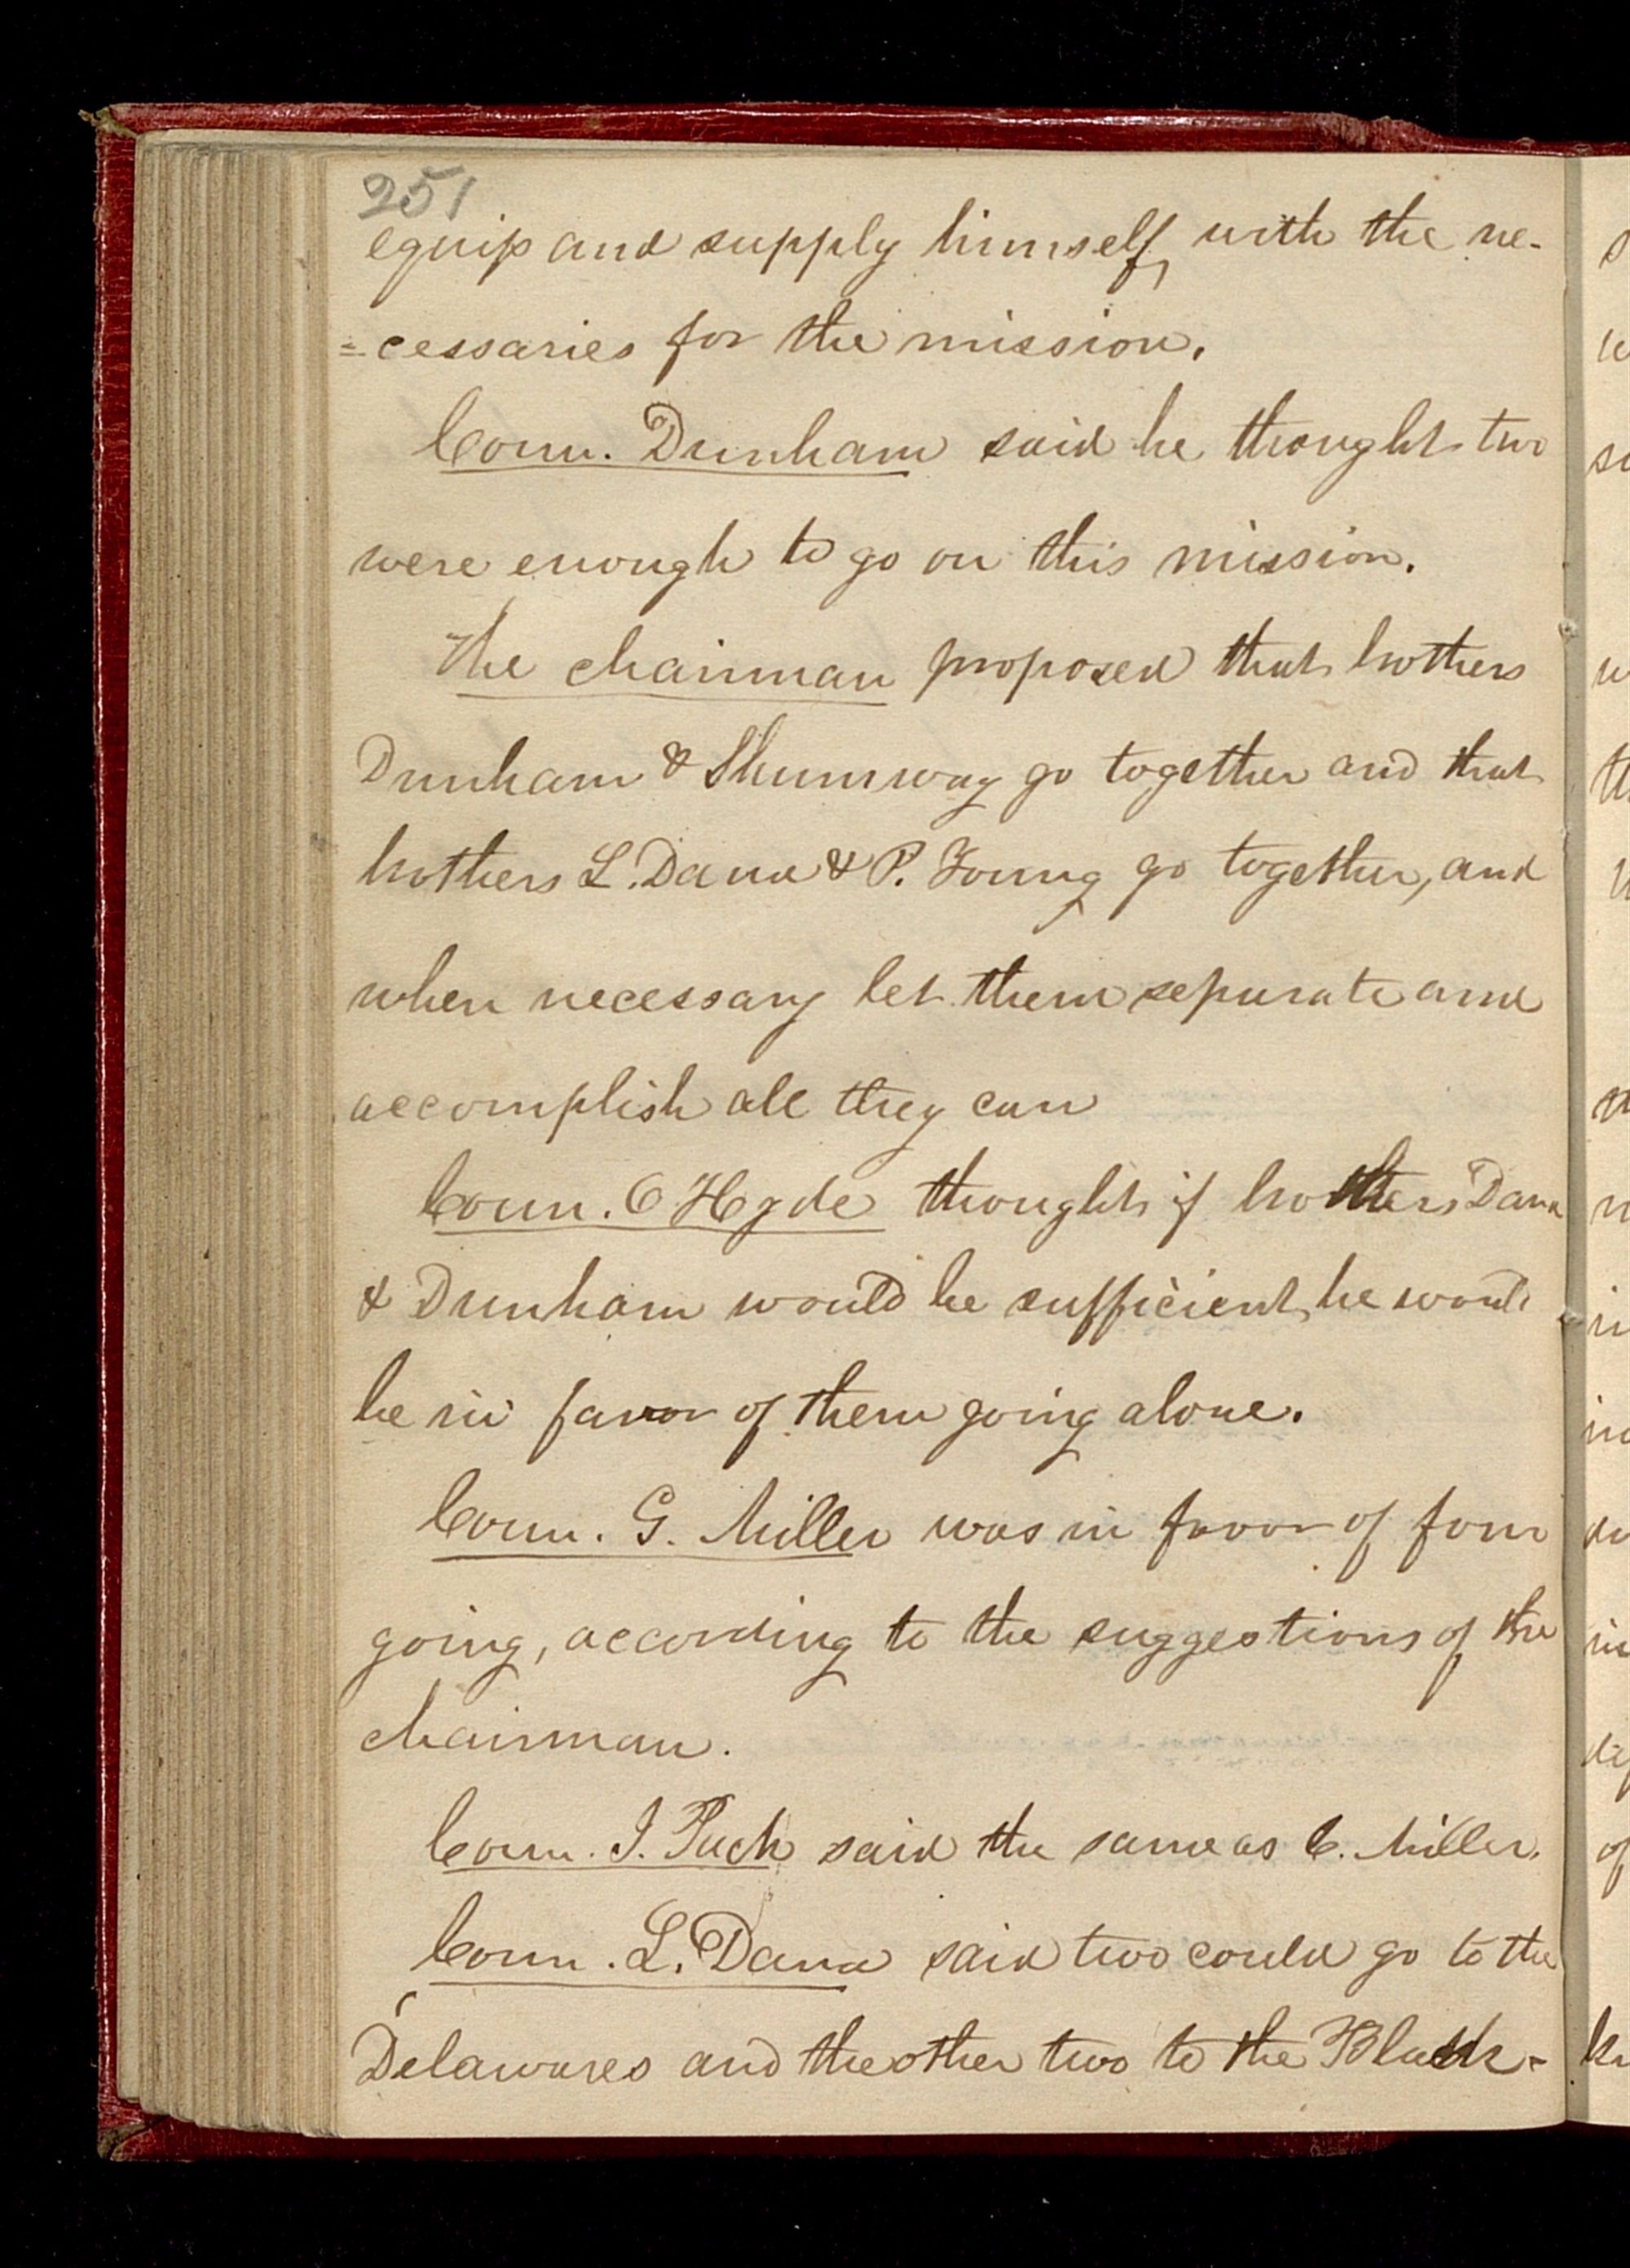 251
equip and supply himself, with the ne-
=cessaries for the mission.
Coun. Dunham said he thought two
were enough to go on this mission.
The chairman proposed that brothers
Dunham & Shumway go together and that
brothers L. Dana & P. Young go together, and
when necessary let them separate and
accomplish all they can
Coun. O Hyde thought if brothers Dana
& Dunham would be sufficient he would
be in favor of them going alone.
Coun. G. Miller was in favor of four
going, according to the suggestions of the
chairman.
Coun. J. Pack said the same as C. Miller.
Coun. L. Dana said two could go to the
Delawares and the other two to the Black-